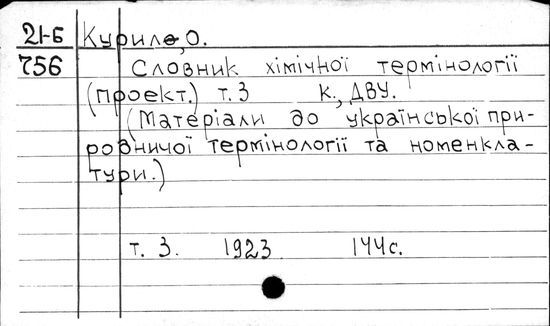 21-Б Курило, О.
756 Словник хімічної термінології
(проект.) т. 3 К., ДВУ.
(Матеріали до української при-
родничої термінології та номенкла-
тури.)
т. 3. 1923 144с.